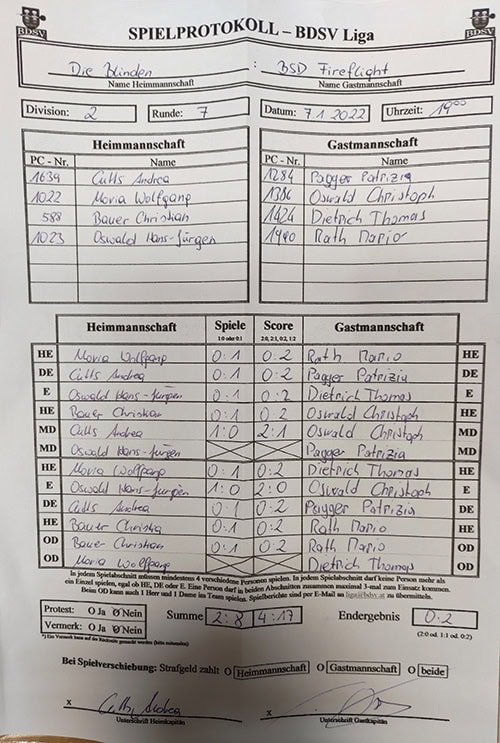 BDSV
SPIELPROTOKOLL – BDSV Liga
BDSV
Die Blinden : BSD Fireflight
Name Heimmannschaft Name Gastmannschaft
Division: 2 Runde: 7 Datum: 7.1.2022 Uhrzeit: 19⁰⁰
Heimmannschaft Gastmannschaft
PC - Nr. Name PC - Nr. Name
1639 Cutts Andrea 1284 Pagger Patrizia
1022 Moria Wolfgang 1386 Oswald Christoph
588 Bauer Christian 1424 Dietrich Thomas
1023 Oswald Hans-Jürgen 1990 Rath Mario
Heimmannschaft Spiele Score Gastmannschaft
1:0 oder 0:1 2:0, 2:1, 0:2, 1:2
HE Moria Wolfgang 0:1 0:2 Rath Mario HE
DE Cutts Andrea 0:1 0:2 Pagger Patrizia DE
E Oswald Hans-Jürgen 0:1 0:2 Dietrich Thomas E
HE Bauer Christian 0:1 0:2 Oswald Christoph HE
MD Cutts Andrea 1:0 2:1 Oswald Christoph MD
MD Oswald Hans-Jürgen Pagger Patrizia MD
HE Moria Wolfgang 0:1 0:2 Dietrich Thomas HE
E Oswald Hans-Jürgen 1:0 2:0 Oswald Christoph E
DE Cutts Andrea 0:1 0:2 Pagger Patrizia DE
HE Bauer Christia 0:1 0:2 Rath Mario HE
OD Bauer Christian 0:1 0:2 Rath Mario OD
OD Moria Wolfgang Dietrich Thomas OD
In jedem Spielabschnitt müssen mindestens 4 verschiedene Personen spielen. In jedem Spielabschnitt darf keine Person mehr als
ein Einzel spielen, egal ob HE, DE oder E. Eine Person darf in beiden Abschnitten zusammen maximal 3-mal zum Einsatz kommen.
Beim OD kann auch 1 Herr und 1 Dame im Team spielen. Spielberichte sind per E-Mail an liga@bdsv.at zu übermitteln.
Protest: O Ja O Nein Summe 2:8 4:17 Endergebnis 0:2
Vermerk: O Ja O Nein (2:0 od. 1:1 od. 0:2)
*) Ein Vermerk kann auf der Rückseite gemacht werden (bitte ankreuzen)
Bei Spielverschiebung: Strafgeld zahlt O Heimmannschaft O Gastmannschaft O beide
x Cutts Andrea x
Unterschrift Heimkapitän Unterschrift Gastkapitän